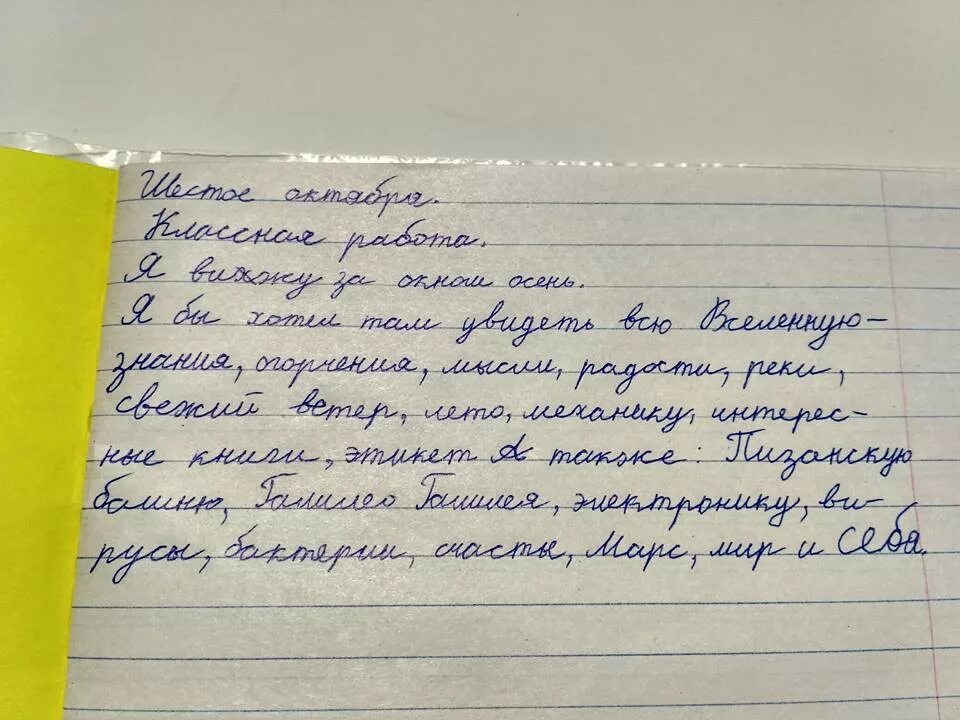 Шестое октября.
Классная работа.
Я вижу за окном осень.
Я бы хотел там увидеть всю Вселенную-
знания, огорчения, мысли, радости, реки,
свежий ветер, лето, механику, интерес-
ные книги, этикет А также: Пизанскую
башню, Галилео Галилея, электронику, ви-
русы, бактерии, счастье, Марс, мир и Себя.